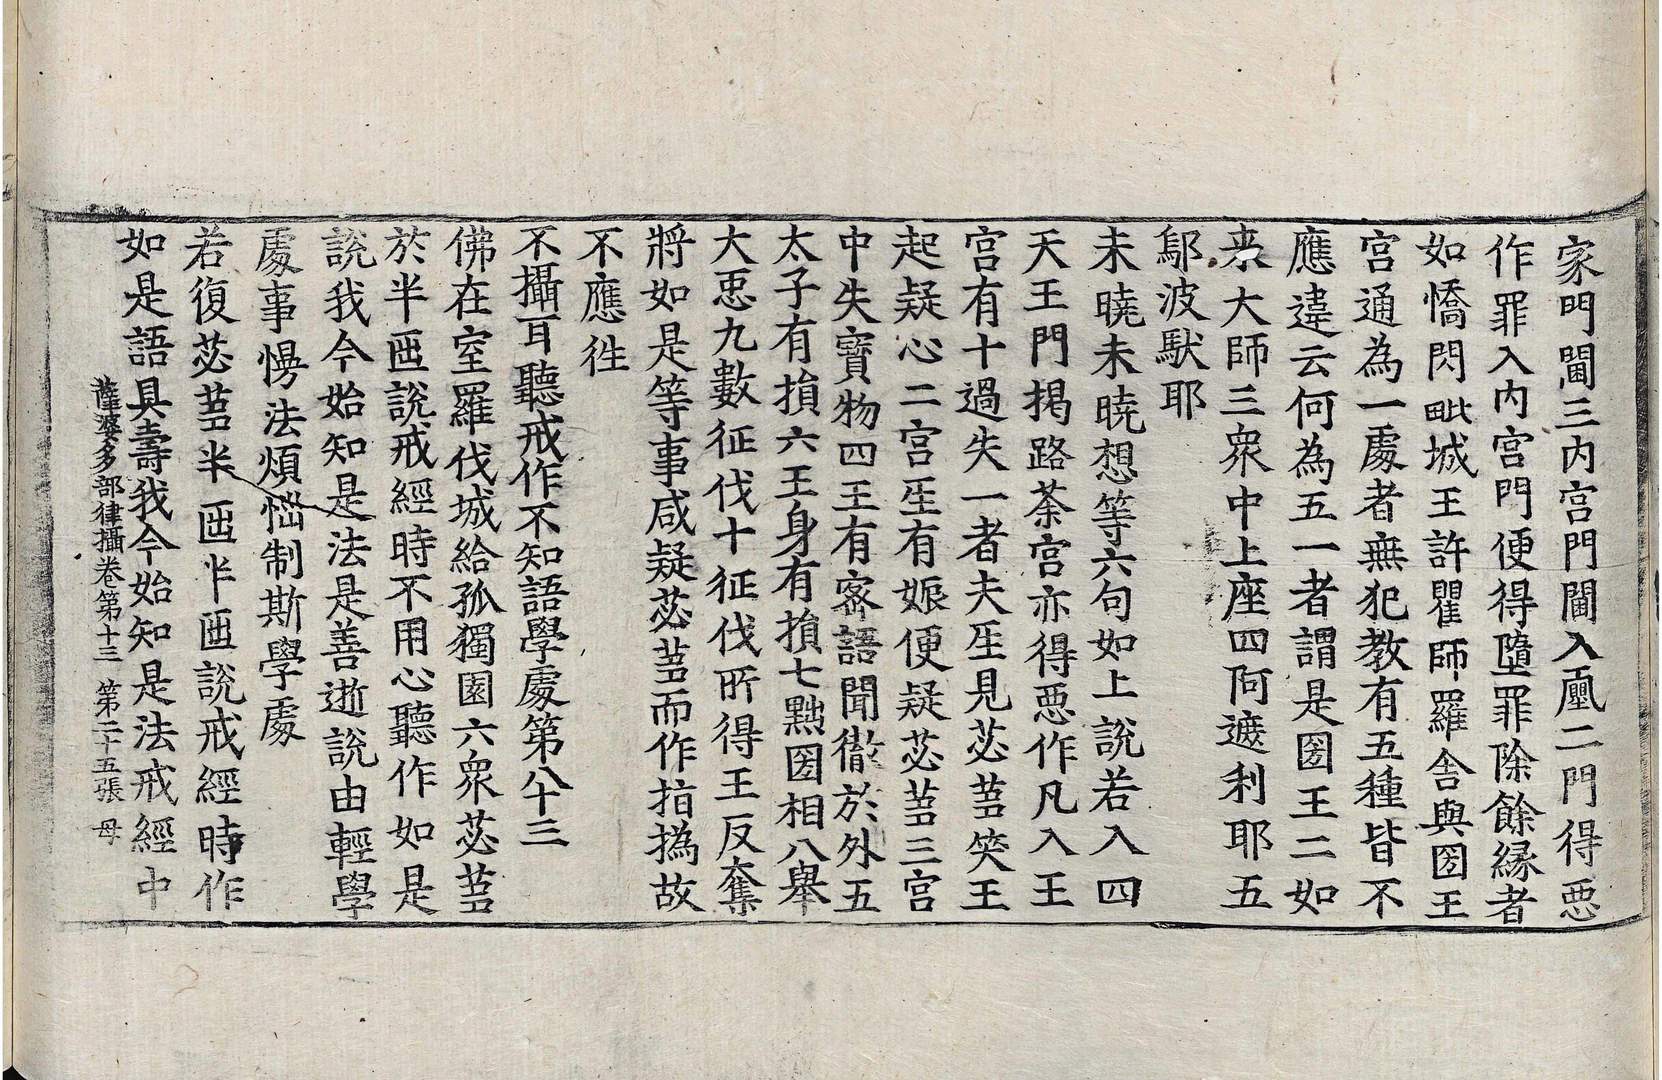 家門閫三内宮門閫入𠪨二門得悪
作罪入内宮門便得墮罪除餘緣者
如憍閃毗城王許瞿師羅舍與圀王
宮通為一處者無犯教有五種皆不
應違云何為五一者謂是圀王二如
来大師三眾中上座四阿遮利耶五
鄔波馱耶
未曉未曉想等六句如上說若入四
天王門揭路荼宮亦得悪作凡入王
宮有十過失一者夫𤯔見苾蒭笑王
起疑心二宮𤯔有娠便疑苾蒭三宮
中失寶物四王有密語聞徹於外五
太子有損六王身有損七黜圀相八舉
大𢘑九數征伐十征伐所得王反奪
將如是等事咸疑苾蒭而作指撝故
不應徃
不攝耳聽戒作不知語學處第八十三
佛在室羅伐城給孤獨園六眾苾蒭
於半𠥱說戒經時不用心聽作如是
說我今始知是法是善逝說由輕學
處事慢法煩惱制斯學處
若復苾蒭半𠥱半𠥱說戒經時作
如是語具壽我今始知是法戒經中
薩婆多部律攝卷第十三 第二十五張 母